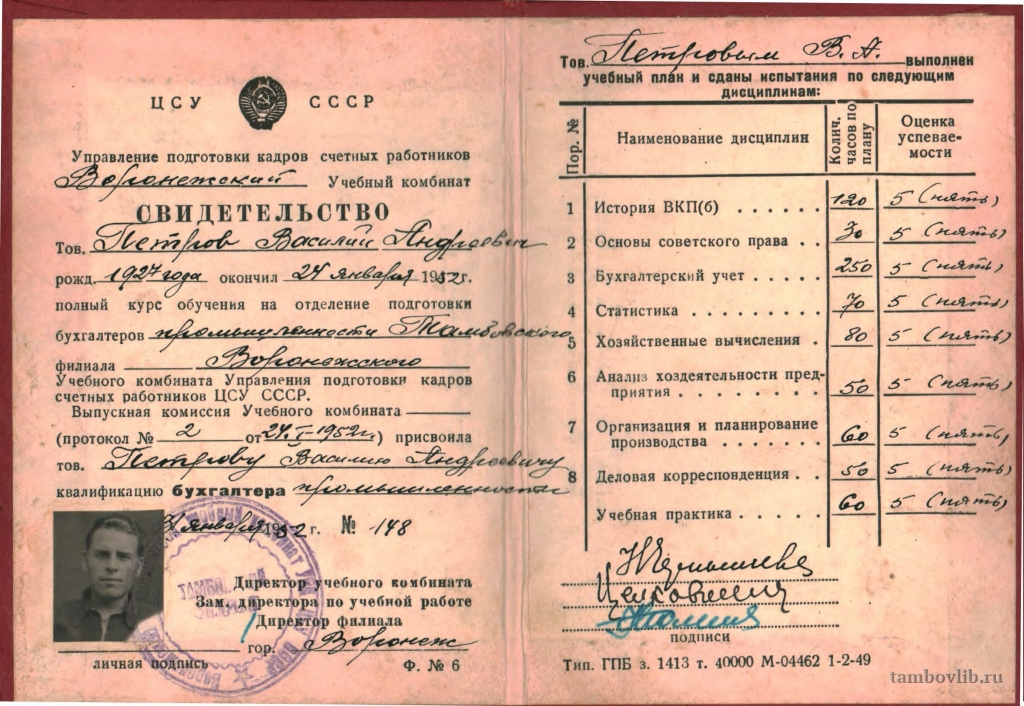 ЦСУ СССР
Управление подготовки кадров счетных работников
Воронежский Учебный комбинат
СВИДЕТЕЛЬСТВО
Тов. Петров Василий Андреевич
рожд. 1927 года окончил 24 января 1952 г.
полный курс обучения на отделение подготовки
бухгалтеров промышленности Тамбовского
филиала Воронежского
Учебного комбината Управления подготовки кадров
счетных работников ЦСУ СССР.
Выпускная комиссия Учебного комбината
(протокол № 2 от 24.I-1952 г.) присвоила
тов. Петрову Василию Андреевичу
квалификацию бухгалтера промышленности
января 1952 г. № 148
Директор учебного комбината
Зам. директора по учебной работе
Директор филиала
гор. Воронеж
личная подпись Ф. № 6
Тов. Петровым В. А. выполнен
учебный план и сданы испытания по следующим
дисциплинам:
Пор. № Наименование дисциплин Колич. часов по плану Оценка успеваемости
1 История ВКП(б) . . . . . . . 120 5 (пять)
2 Основы советского права . . 30 5 (пять)
3 Бухгалтерский учет . . . . . 250 5 (пять)
4 Статистика . . . . . . . . . 70 5 (пять)
5 Хозяйственные вычисления . 80 5 (пять)
6 Анализ хоздеятельности пред-
приятия . . . . . . . . . . 50 5 (пять)
7 Организация и планирование
производства . . . . . . . . 60 5 (пять)
8 Деловая корреспонденция . . 50 5 (пять)
Учебная практика . . . . . . 60 5 (пять)
подписи
Тип. ГПБ з. 1413 т. 40000 М-04462 1-2-49
tambovlib.ru